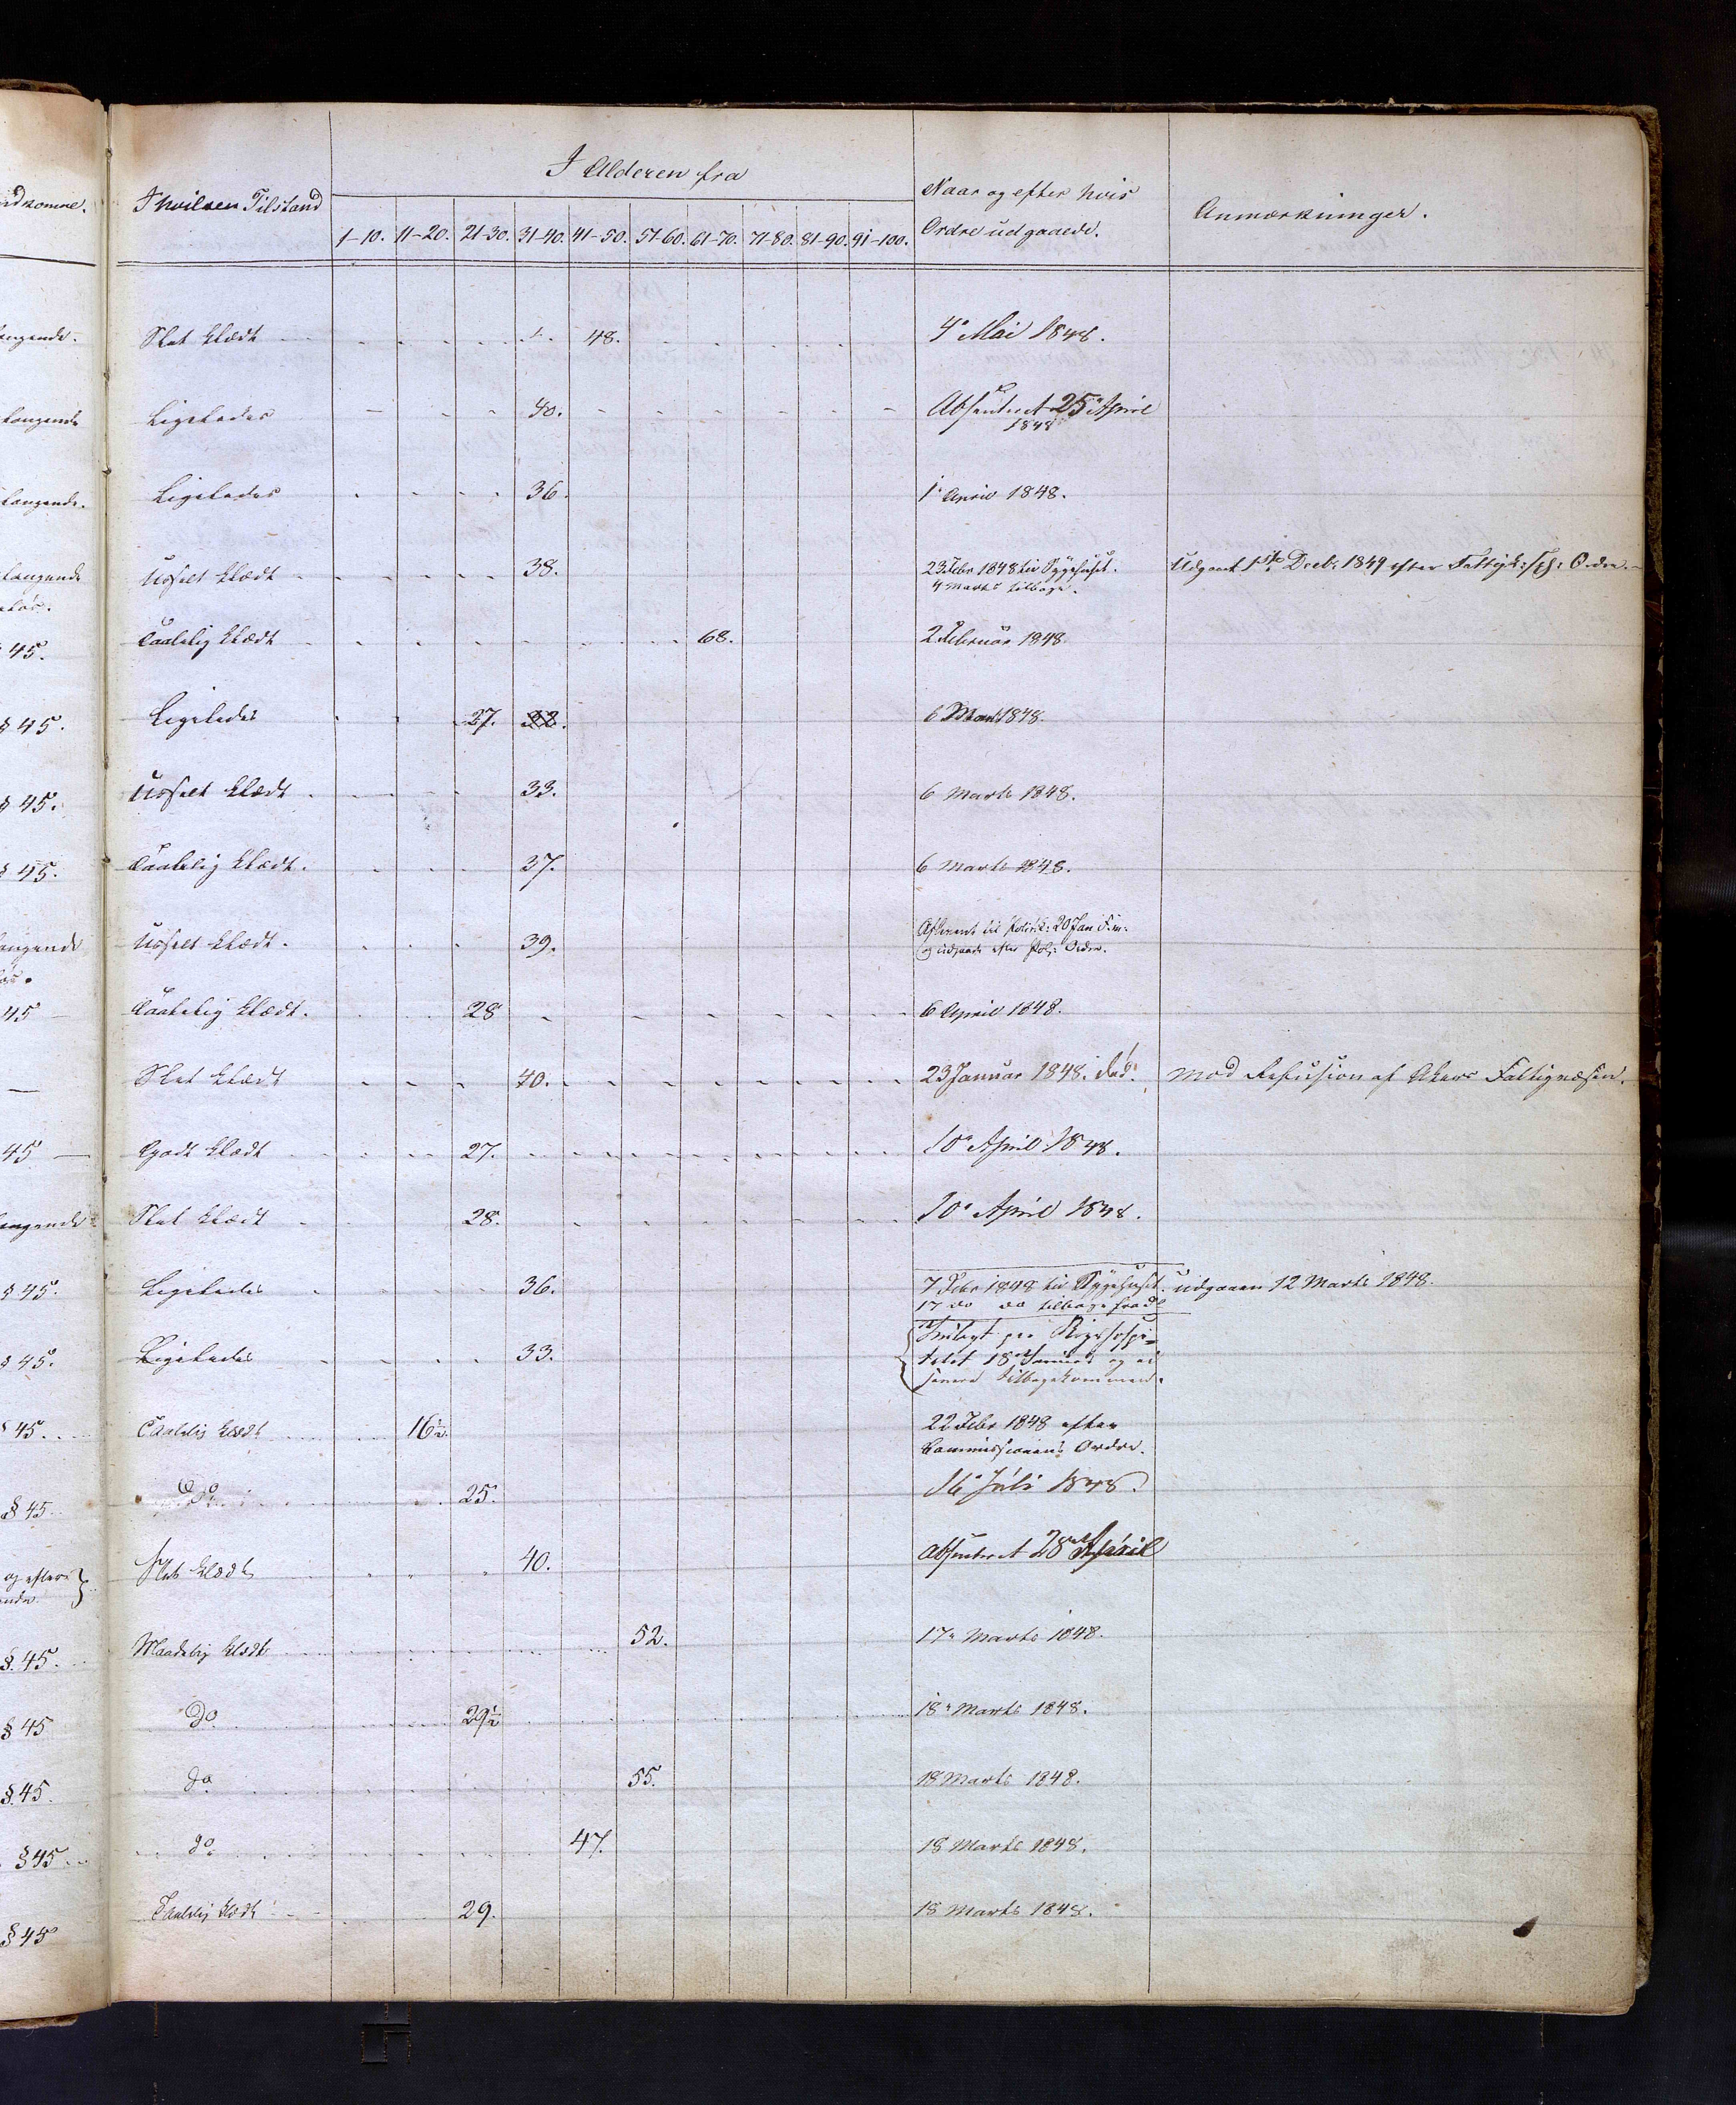 I Alderen fra
I hvilken Tilstand
Naar og efter hvis
Ordre udgaaede.
Anmærkninger.
1-10. 11-20. 21-30. 31-40. 41-50. 51-60. 61-70. 71-80. 81-90. 91-100.
Slet klædt 48. 4' Mai 1848.
Ligeledes 40. Absenteret 25' April
1848
Ligeledes 36. 1' April 1848.
Usselt klædt 38. 23 Febr 1848 til Sygehuset. Udgaaet 1ste Decb: 1849 efter Ordre.
4 Marts tilbage.
Taalelig klædt 68. 2 Februar 1848.
§ 45.
Ligeledes 27. 6 Marts 1848.
§ 45.
Usselt klædt 33. 6 Marts 1848.
§ 45.
Taalelig klædt. 37. 6 Marts 1848.
§ 45.
Usselt klædt. 39. til 20 Jan:
og udgaaet efter Pol: Ordre.
Taalelig klædt. 28 6 April 1848.
45
Slet klædt 40. 23 Januar 1848. død. mod Refusion af Akers Fattigvæsen.
Godt klædt 27. 10' April 1848.
45
Slet klædt 28. 10' April 1848.
Ligeledes 36. 7 Febr 1848 til Sygehuset. udgaaen 12 Marts 1848.
§ 45. 17 do do tilbage fra do
Ligeledes 33. Indlagt paa Rigshospi=
§ 45. talet 18 Januar og ei
senere tilbagekommen.
Taalelig klædt 16½. 22 Febr 1848 efter
§ 45. Commissionens Ordre.
Do 25. 16' Juli 1848.
§ 45
Slet klædt 40. Absenteret 28' April
og efter
Maadelig klædt 52. 17' Marts 1848.
§. 45.
Do 29½ 18' Marts 1848.
§ 45
do 55. 18 Marts 1848.
§. 45.
do 47. 18 Marts 1848.
§ 45
Taalelig klædt 29. 18 Marts 1848.
§ 45